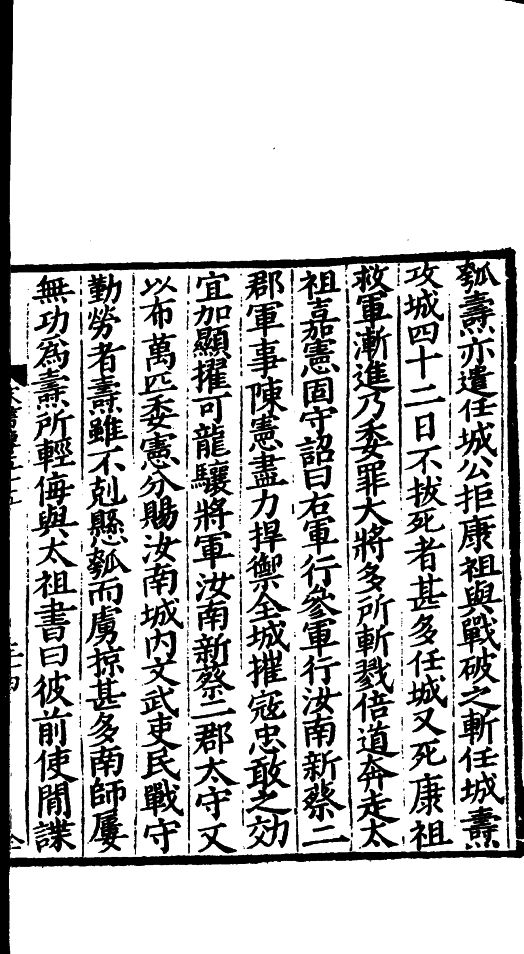 瓠燾亦遣任城公拒康祖與戰破之斬任城燾
攻城四十二日不拔死者甚多任城又死康祖
救軍漸進乃委罪大將多所斬戮倍道奔走太
祖嘉憲固守詔曰右軍行參軍行汝南新蔡二
郡軍事陳憲盡力捍禦全城摧寇忠敢之効
宜加顯擢可龍驤將軍汝南新蔡二郡太守又
以布萬匹委憲分賜汝南城內文武吏民戰守
勤勞者燾雖不剋懸瓠而虜掠甚多南師屢
無功為燾所輕侮與太祖書曰彼前使間諜